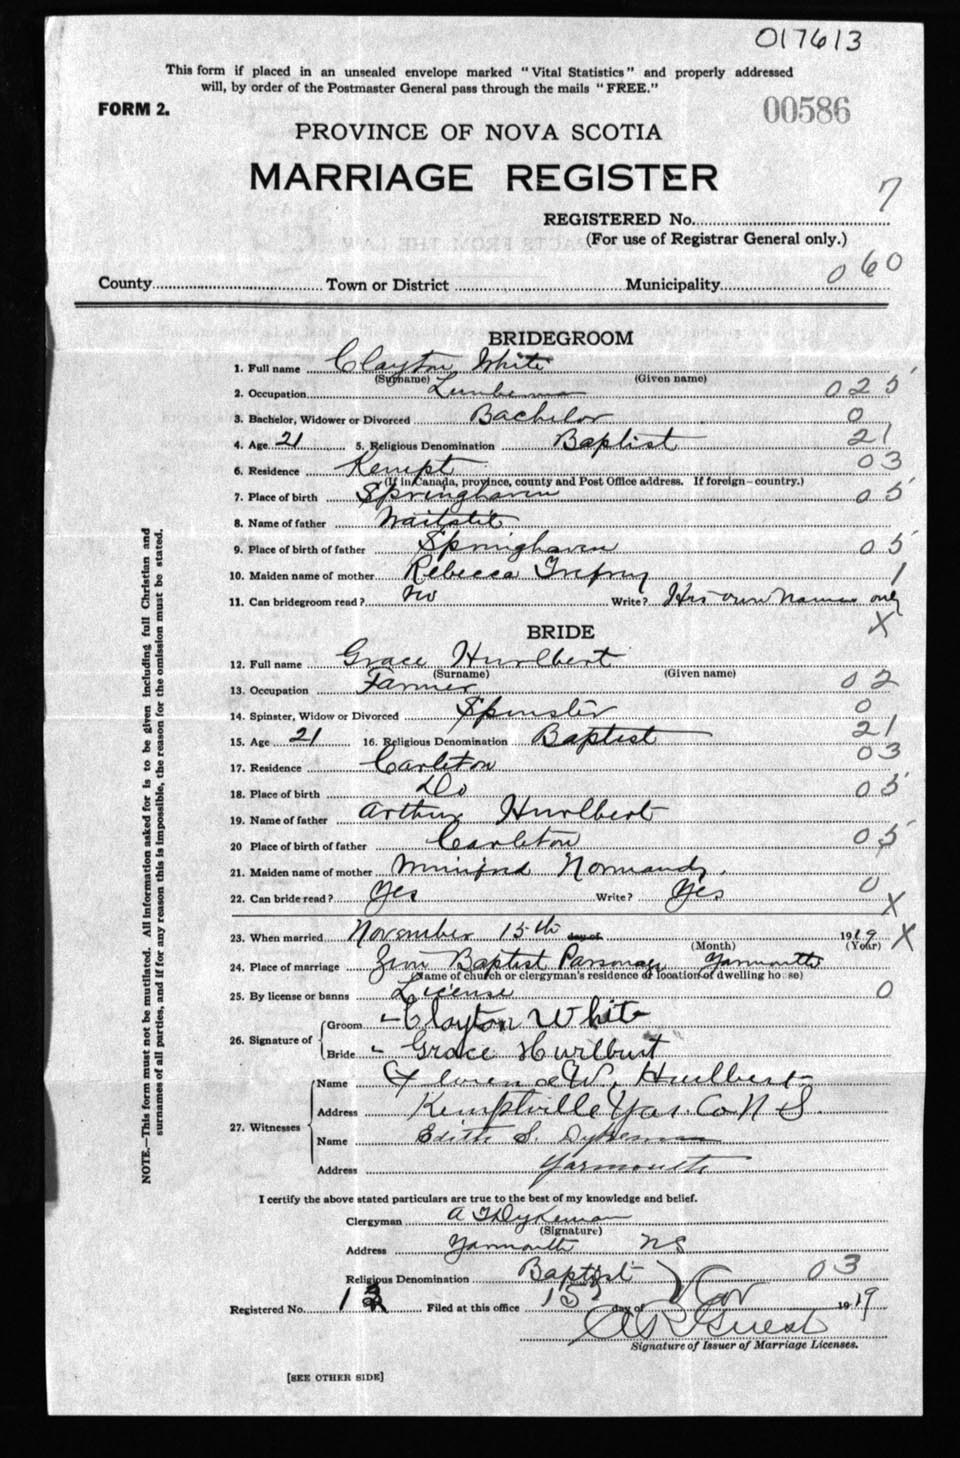 017613
This form if placed in an unsealed envelope marked "Vital Statistics" and properly addressed
will, by order of the Postmaster General pass through the mails "FREE."
FORM 2.
00586
PROVINCE OF NOVA SCOTIA
MARRIAGE REGISTER
7
REGISTERED No.
(For use of Registrar General only.)
County Town or District Municipality 060
BRIDEGROOM
1. Full name Clayton White
(Surname) (Given name)
2. Occupation 025
3. Bachelor, Widower or Divorced Bachelor 0
4. Age 21 5. Religious Denomination Baptist 21
6. Residence Kempt 03
(If in Canada, province, county and Post Office address. If foreign—country.)
7. Place of birth Springhaven 05
8. Name of father
9. Place of birth of father Springhaven 05
10. Maiden name of mother Rebecca 1
11. Can bridegroom read? no Write? His own name only
X
BRIDE
12. Full name Grace Hurlbert
(Surname) (Given name)
13. Occupation Farmer 02
14. Spinster, Widow or Divorced Spinster 0
15. Age 21 16. Religious Denomination Baptist 21
17. Residence Carleton 03
18. Place of birth Do 05
19. Name of father Arthur Hurlbert
20 Place of birth of father Carleton 05
21. Maiden name of mother Normandy.
22. Can bride read? Yes Write? Yes 0
X
23. When married November 15th day of 1919 X
(Month) (Year)
24. Place of marriage Zion Baptist Parsonage Yarmouth
(Name of church or clergyman's residence or location of dwelling house)
25. By license or banns License 0
26. Signature of
Groom Clayton White
Bride Grace Hurlburt
27. Witnesses
Name W. Hurlbert
Address Kemptville Yar. Co. N S.
Name Edith S. Dykeman
Address Yarmouth
I certify the above stated particulars are true to the best of my knowledge and belief.
Clergyman Dykeman
(Signature)
Address Yarmouth NS
Religious Denomination Baptist 03
Registered No. Filed at this office 15 day of Nov 1919
Guest
Signature of Issuer of Marriage Licenses.
[SEE OTHER SIDE]
NOTE.—This form must not be mutilated. All information asked for is to be given including full Christian and
surnames of all parties, and if for any reason this is impossible, the reason for the omission must be stated.